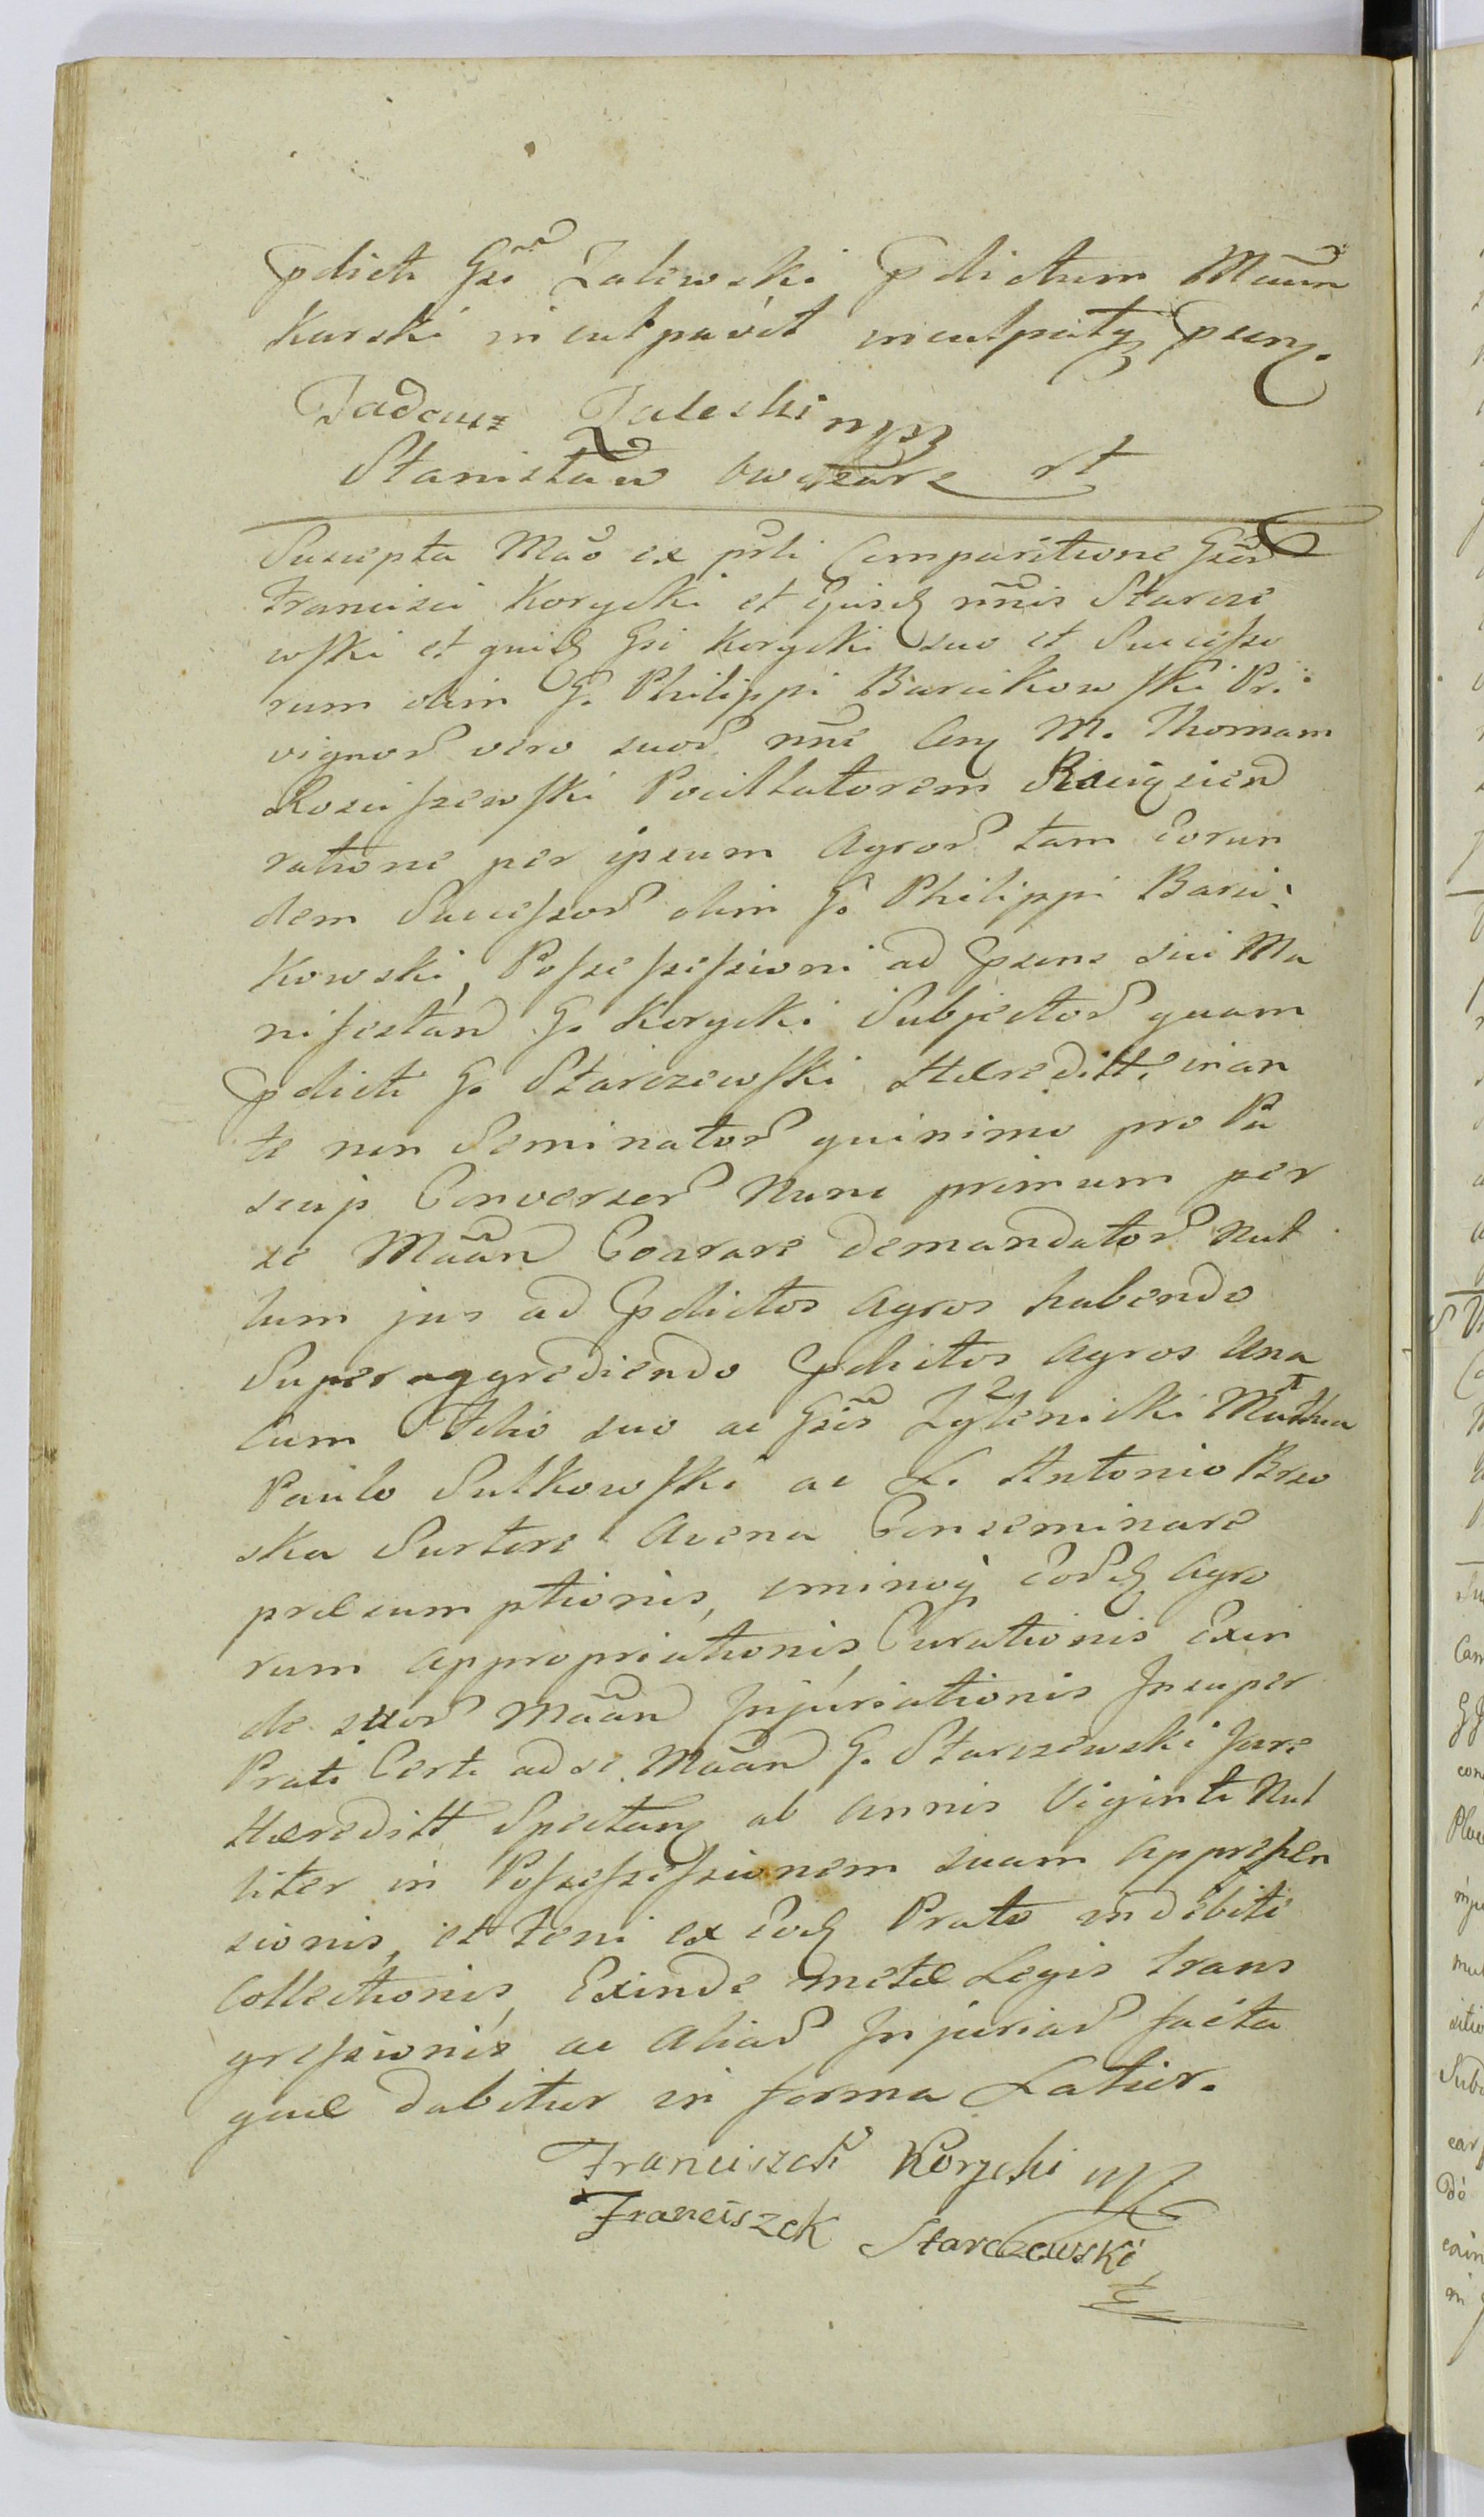 pdicti Gsi Zalewski pdictum Maan
Karski inculpavit inculpatq psens.
Tadeusz Zaleski mpp
Stanisław Owczarz rt
Suscepta Mão ex psli Comparitione Gsor
Francisci Korycki et Ejusd nñis Starcze
wski et quid Gsi Korycki suo et Successo
rum olim G. Philippi Barcikowski Pri
vignor vero suor nñe Cony M. Thomam
Rosciszewski
ratione per ipsum Agror tam Eorun
dem Successor olim G. Philippi Barci:
kowski, Possessessioni ad psens sui Ma
nifestand G. Korycki Subjector quam
pdicti G. Starczewski Hæreditt. in an
te non Seminator quinimo pro Pa
scuis Converser Nunc primum per
se Maan Coarare demandator Nul
lum jus ad pdictos Agros habendo
Superaggrediendo pdictos Agros Una
Cum Filio suo ac Gsis Zglenicki Mathia
Paulo Sutkowski ac L. Antonio Brzo
ska Sartore Avena Conseminare
præsumptionis, eord Agro
rum appropriationis, Curationis Exin
de suor Maan Injuriationis Insuper
Prati Certi ad se Maan G. Starczewski Jure
Hæreditt Spectan ab annis Viginti Nul
liter in Possessessionem suam appræhen
sionis, et Feni ex eod Prato indebite
Collectionis, Exinde metæ Legis trans
gressionis ac Aliar Injuriar facta
quæ dabitur in forma Latior.
Franciszek Korycki mp
Franciszek Starczewski